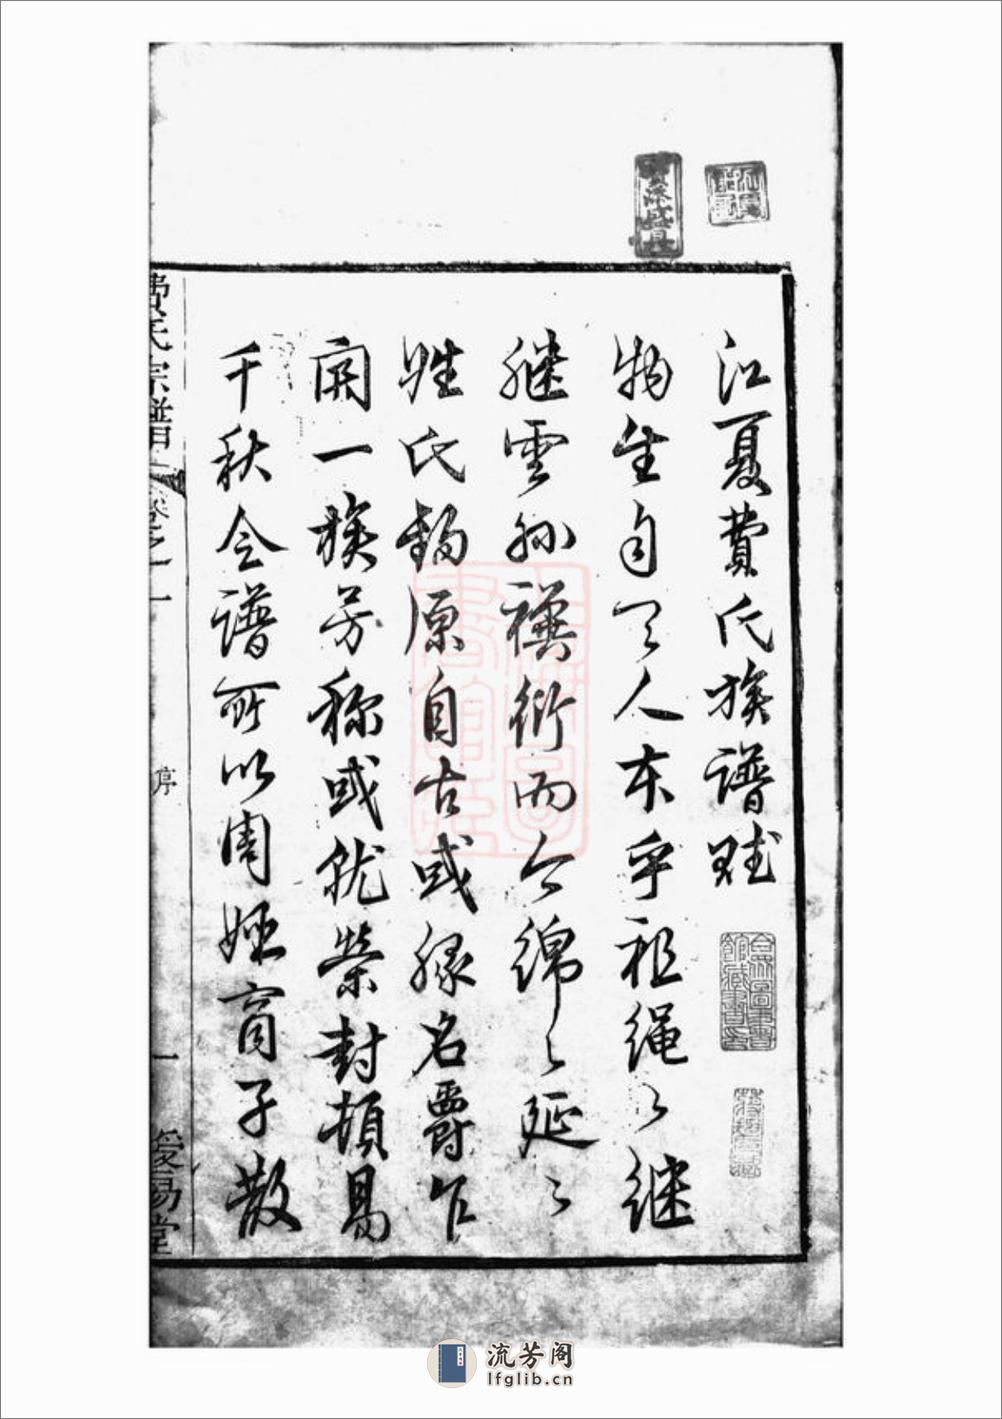 江夏費氏族譜賦
物生自天人本乎祖繩〻継
継雲孫禩衍而今綿〻延〻
姓氏錫原自古或緣名爵乍
開一族芳称或就榮封頓易
千秋令譜所以周姬育子散
費氏宗譜
卷之一
序
一
受易堂
流芳阁
lfglib.cn